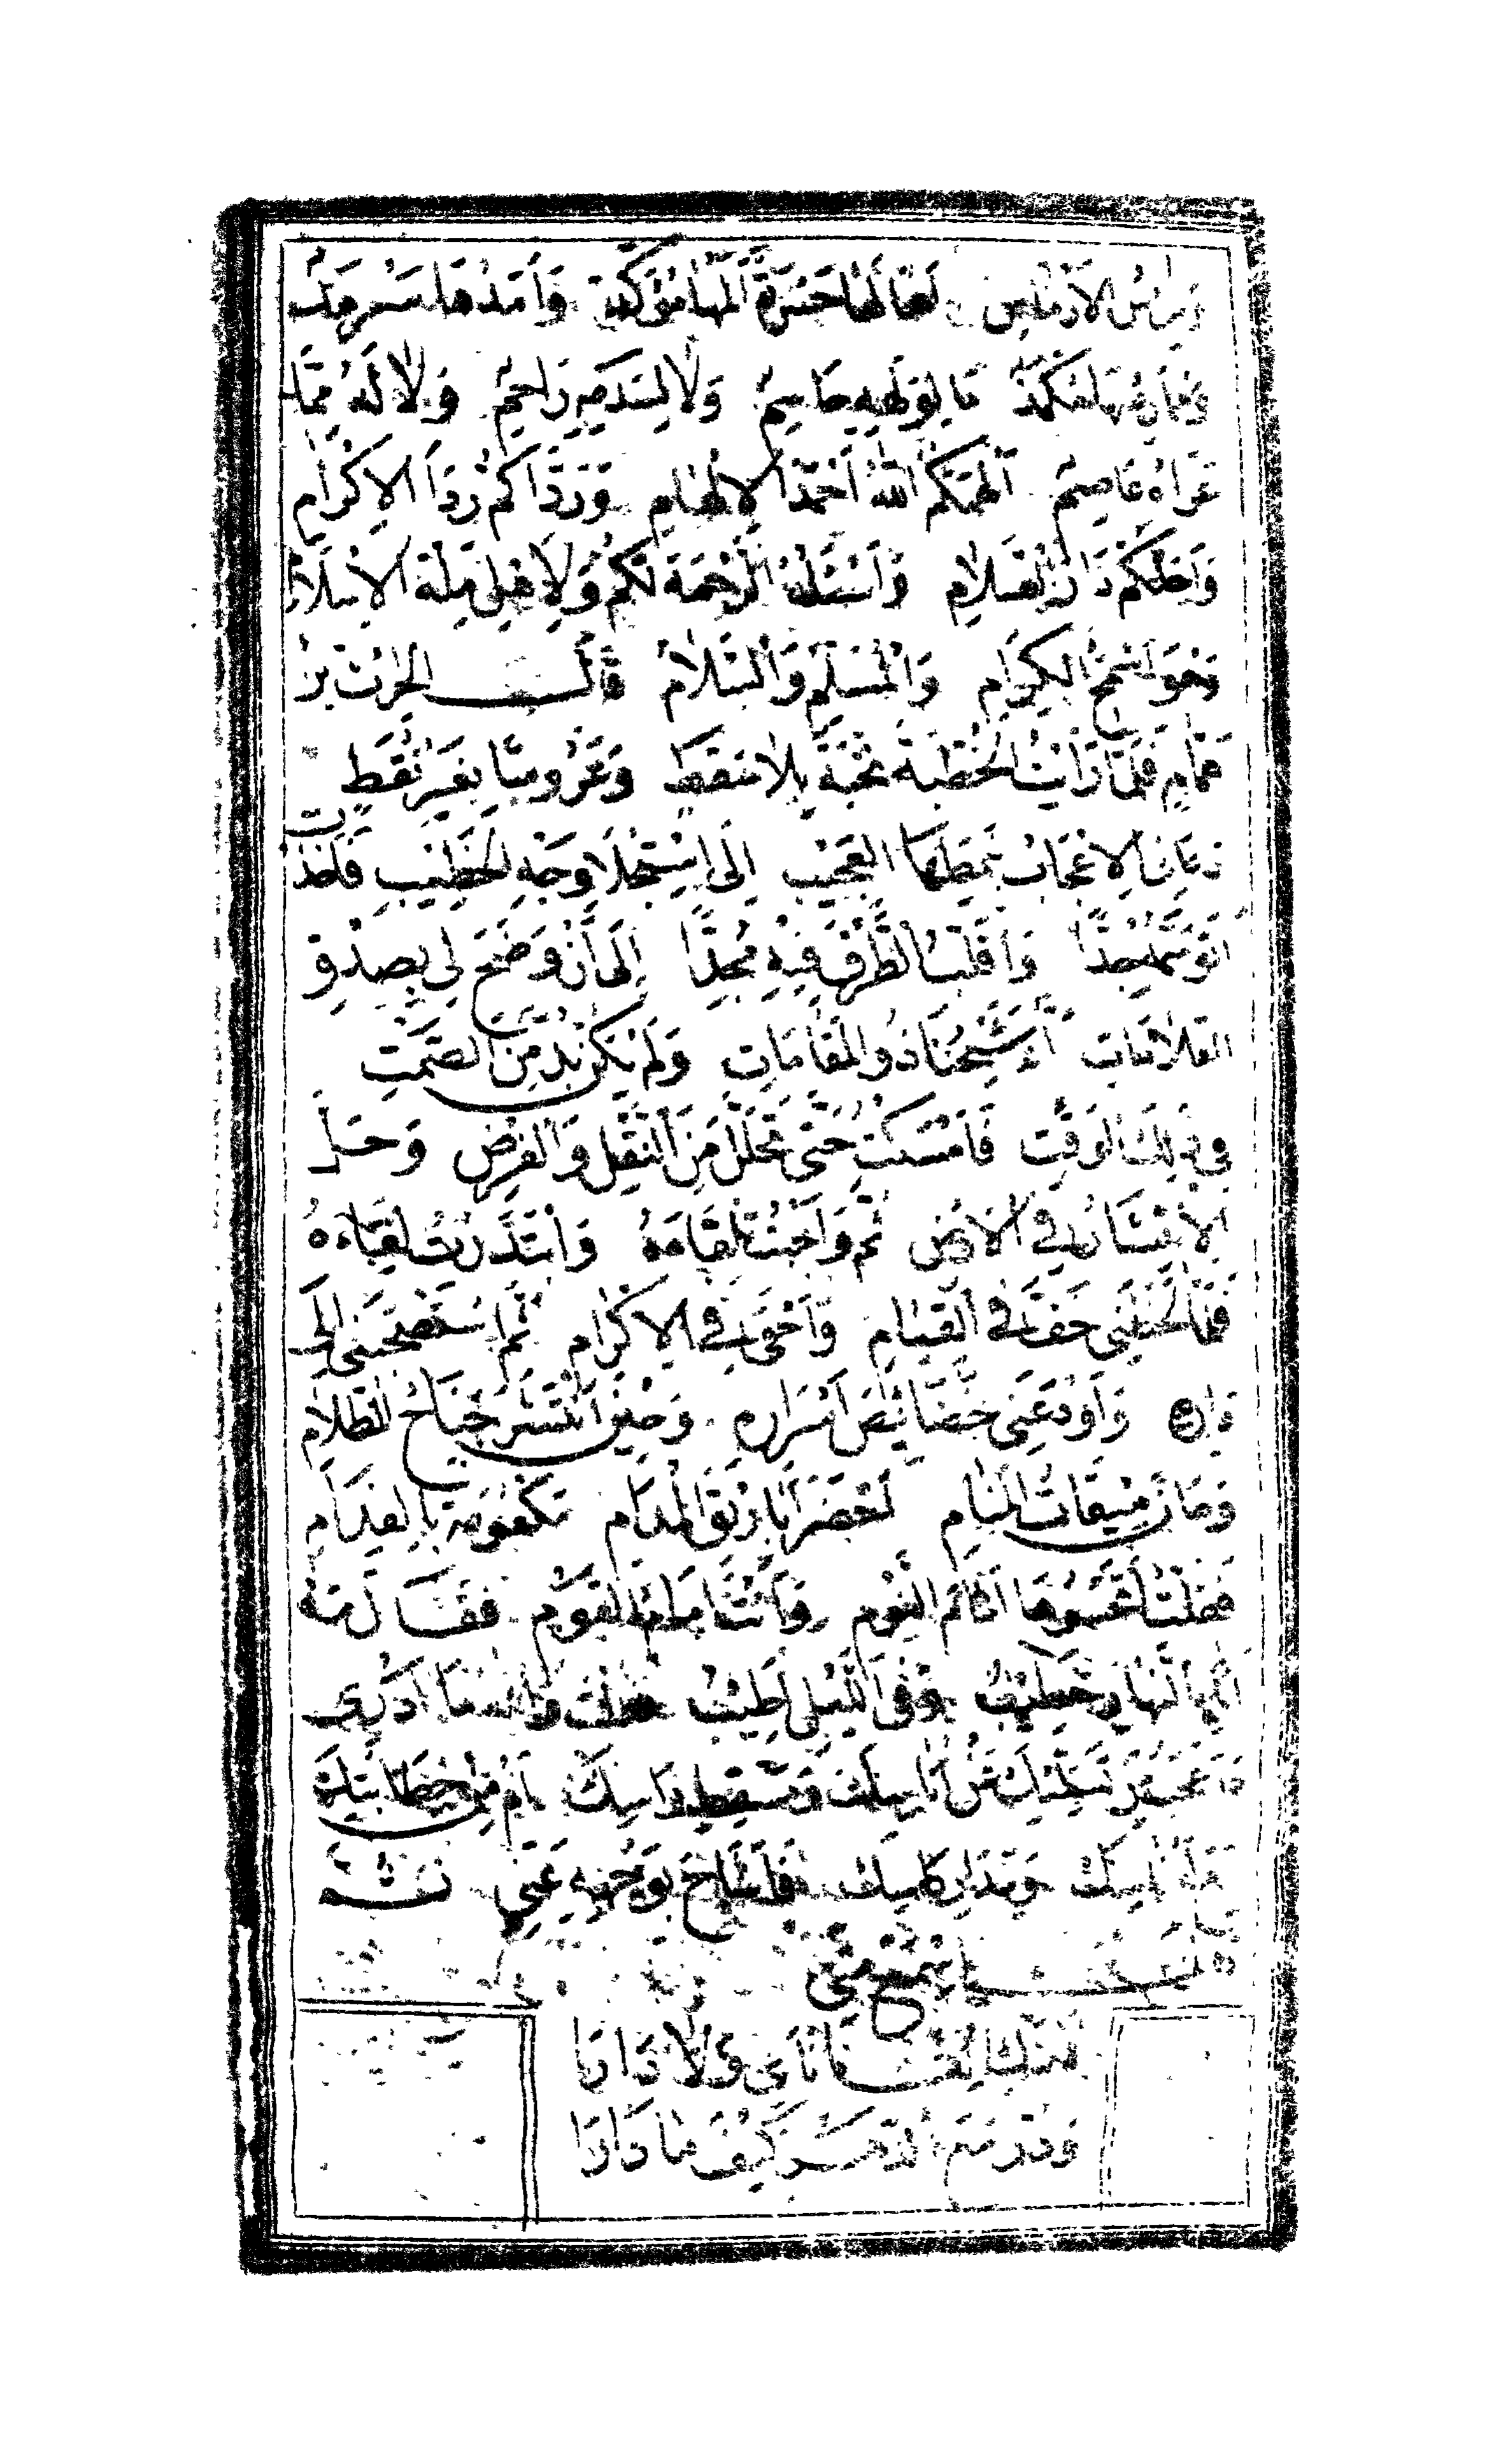 وراس الارماس لها لها حسرة المها مؤكد وامدها سرمد
وممارسها مكمد ما لولهه حاسم ولا لسدمه راحم ولا له مما
عراه عاصم الهمكم الله احمد الالهام ورداكم رداء الاكرام
واحلكم دار السلام واسئله الرحمة لكم ولاهل ملة الاسلام
وهو اسمح الكرام والمسلم والسلام قال الحرث بن
همام فلما رايت الخطبة نخبة بلا سقط وعروسا بغير نقط
دعاني الاعجاب بنمطها العجيب الى استجلاء وجه الخطيب فاخذت
اتوسمه جدا واقلب الطرف فيه مجدا الى ان وضح لي بصدق
العلامات انه شيخنا ذو المقامات ولم يكن بد من الصمت
في ذلك الوقت فامسكت حتى تحلل من النفل والفرض وحل
الانتشار في الارض ثم واجهت تلقاءه وابتدرت لقاءه
فلما لحظني خف في القيام واحفى في الاكرام ثم استصحبني الى
داره واودعني خصائص اسراره وحين انتشر جناح الظلام
وحان ميقات المنام احضر اباريق المدام معكومة بالفدام
فقلت اتحسوها امام النوم وانت امام القوم فقال مه
انا بالنهار خطيب وفي الليل اطيب فقلت والله ما ادري
ااعجب من تسليك عن اناسك ومسقط راسك ام من خطابتك
مع ادناسك ومدار كاسك فاشاح بوجهه عني ثم
قال اسمع مني
لا تبك الفا ناى ولا دارا
ودر مع الدهر كيف ما دارا